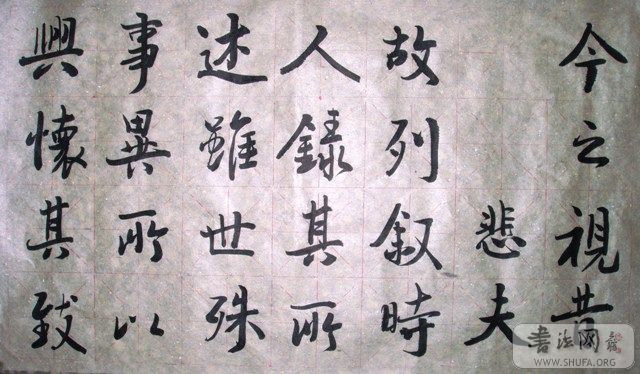 今之視昔
悲夫
故列叙時
人錄其所
述雖世殊
事異所以
興懷其致
书法网
WWW.SHUFA.ORG